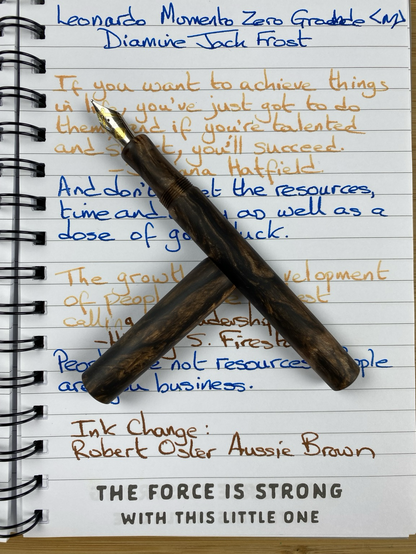 Leonardo Momento Zero Grande <M>
Diamine Jack Frost
If you want to achieve things
in you've just got to do
them and if you're talented
and you'll succeed.
Hatfield.
And don't the resources,
time and as well as a
dose of good luck.
The growth development
of people
calling leadership
S. Firestone
People not resources People
are business.
Ink Change:
Robert Oster Aussie Brown
THE FORCE IS STRONG
WITH THIS LITTLE ONE